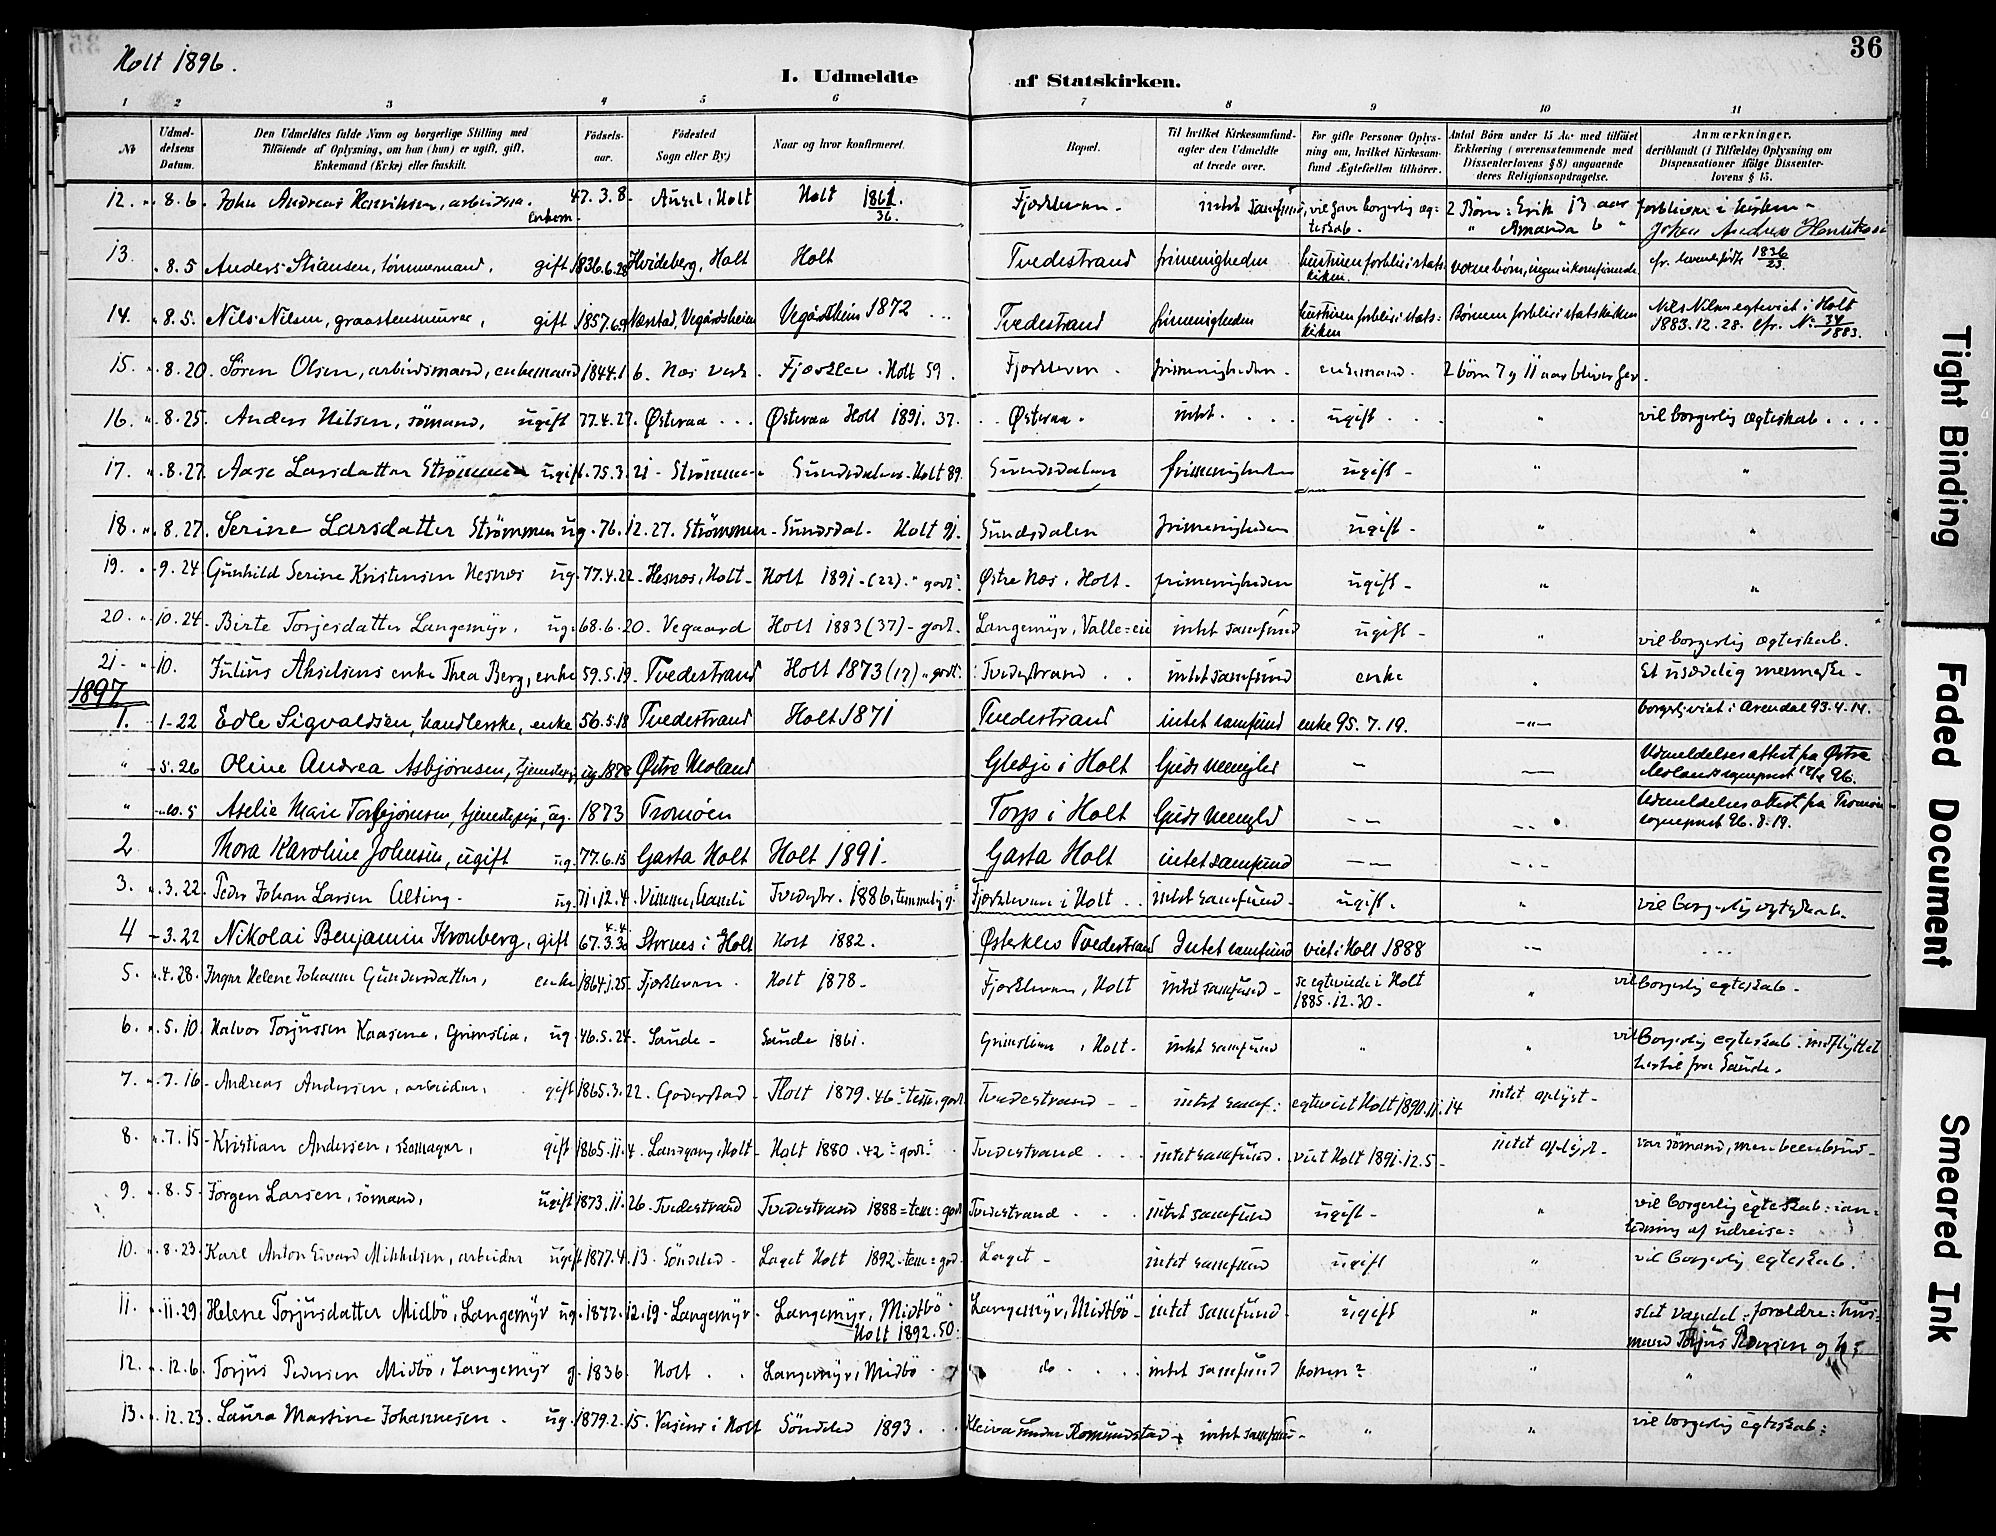 36
Holt 1896.
I. Udmeldte af Statskirken.
1 2 3 4 5 6 7 8 9 10 11
No
Udmeldelsens Datum.
Den Udmeldtes fulde Navn og borgerlige Stilling med Tilföiende af Oplysning, om han (hun) er ugift, gift, Enkemand (Enke) eller fraskilt.
Födselsaar.
Födested Sogn eller By)
Naar og hvor konfirmeret.
Bopæl.
Til hvilket Kirkesamfund agter den Udmeldte at træde over.
For gifte Personer Oplysning om, hvilket Kirkesamfund Ægtefællen tilhörer.
Antal Börn under 15 Aar med tilföiet Erklæring (overensstemmende med Dissenterlovens § 8) angaaende deres Religionsopdragelse.
Anmærkninger, deriblandt (i Tilfælde) Oplysning om Dispensationer ifölge Dissenterlovens § 15.
12. " 8.6. John Andreas Henriksen, arbeidsm. enkem. 47.3.8. Holt Holt 1861. 36. Fjærkleven - intet samfund, vil have borgerlig ægteskab. 2 Börn: Erik 13 aar Amanda 6 " forblivene i kirken - Johan Andreas Henriksen
13. " 8.5 Anders Stiansen, tömmermand, gift 1836.6.28 Hvideberg, Holt Holt Tvedestrand frimenigheden hustruen forbli i statskirken. voxne börn, ingen ukonfirmerede. cfr. levendefödte 1836 23.
14. " 8.5. Nils Nilsen, graastensmurer, gift 1857.6.9 Næstad, Vegårdsheien Vegårdsheien 1872 Tvedestrand frimenigheden hustruen forbli i statskirken Börnene forbli i statskirken Nils Nilsen egteviet i Holt 1883.12.28. cfr. No 34/1883.
15. " 8.20. Sören Olsen, arbeidsmand, enkemand 1844.1.6. Næs verk. Fjærkleven. Holt 59. Fjærkleven. frimenigheden. enkemand. 2 börn 7 og 11 aar bliver her.
16. " 8.25. Anders Nilsen, sömand, ugift 77.4.27. Österaa Österaa Holt 1891. 37. Österaa. intet. ugift " vil borgerlig ægteskab.
17. " 8.27. Aase Larsdatter Strömmen ugift. 75.3.21 - Strömmen Sundsdalen - Holt 89. Sundsdalen frimenigheden ugift - " "
18. " 8.27. Serine Larsdatter Strömmen ug. 76.12.27. Strömmen - Sundsdal. Holt 91. Sundsdalen frimenigheden ugift - " "
19. " 9.24. Gunhild Serine Kristensen Hesnes ug. 77.4.22. Hesnes, Holt - Holt 1891 - (22). " godt: Østre Næs, Holt - frimenigheden ugift - " "
20. " 10.24. Birte Torjesdatter Langemyr. ug. 68.6.20. Vegaard Holt 1883 (37) - godt. Langemyr, Valle=eie intet samfund ugift - " vil borgerlig ægteskab.
21. " 10. Julius Akselsens enke Thea Berg, enke 59.5.19. Tvedestrand Holt 1873 (17) " godt: Tvedestrand intet samfund enke " Et usædelig menneske -
1897
1. 1-22 Edle Sigvaldsen, handlerske, enke 56.5.18 Tvedestrand Holt 1871 Tvedestrand intet samfund enke 95.7.19. -"- borgerl. viet i Arendal 93.4.14.
" 5.26 Oline Andrea Asbjørnsen, tjenestepi. ug. 1878 Østre Moland Gledje i Holt Guds Menighed - - Udmeldelsesattest fra Østre Molands sogneprest 96.
" 10.5 Aselie Marie Torbjørnsen, tjenestepige, ug. 1873 Tromöen Torp i Holt Guds Menighed - - Udmeldelsesattest fra Tromöens sogneprest 96.8.19.
2 Thora Karoline Johnsen, ugift ug. 77.6.15 Garta Holt Holt 1891. Garta Holt intet samfund - -
3. " 3.22. Peder Johan Larsen Alting - ug. 71.12.4. Tvedestr. 1886, temmelig g: Fjærkleven i Holt intet samfund - ugift. " vil borgerlig egteskab.
4 - 3.22 Nikolai Benjamin Kronberg, gift 67.3.30 4.4 Stornes i Holt Holt 1882. Østerklev Tvedestrand Intet samfund viet i Holt 1888 - -
5. " 4.28. Inger Helene Johanne Gundersdatter, enke 1864.1.25. Fjærkleven. Holt 1878 - Fjærkleven, Holt intet samfund - se egteviede i Holt 1885.12.30 - " vil borgerlig egteskab -
6. " 5.10. Halvor Torjussen Kaasene, Grimslia, ug. 46.5.24. Sande - Sande 1861. Grimslien, Holt - intet samfund " " vil Borgerlig egteskab. indflyttet hertil fra Sande.
7. " 7.16. Andreas Andersen, arbeider, gift 1865.3.22. Goderstad - Holt 1879.46 = tem. godt Tvedestrand - - intet samf: egteviet Holt 1890.11.14 intet oplyst -
8. " 7.15. Kristian Andersen, skomager, gift 1865.11.4. Landgang, Holt - Holt 1880.42 = godt = Tvedestrand intet samfund. viet Holt 1891.12.5 - intet oplyst - var sömand, men beenbrud -
9. " 8.5. Jörgen Larsen, sömand, ugift 1873.11.26. Tvedestrand Tvedestrand 1888 = tem: godt Tvedestrand intet samfund ugift - " vil borgerlig egteskab: ianledning af udreise:
10. " 8.23. Karl Anton Edvard Mikkelsen, arbeider ugift 1877.4.13. Söndeled - Laget Holt 1892. tem = god. Laget - intet samfund ugift " vil borgerlig egteskab.
11. " 11.29. Helene Torjusdatter Midbö, Langemyr ug. 1877.12.19. Langemyr. Langemyr, Midtbö - Holt 1892.50: Langemyr, Midtbö - intet samfund - ugift " slet vandel: forældre: husmand Torjus Pedersen og h:
12. " 12.6. Torjus Pedersen Midbö, Langemyr g. 1836. Holt Langemyr, Midbö do intet samfund konen? " "
13. " 12.23. Laura Martine Johannesen. ug. 1879.2.15. i Holt Söndeled 1893. Kleiva under Romundstad - intet samfund - " " vil borgerlig egteskab:
Tight Binding
Faded Document
Smeared Ink